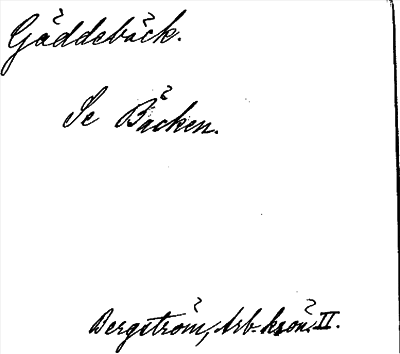 Gäddebäck.
Se Bäcken.
Bergström, Arb-krön. II.